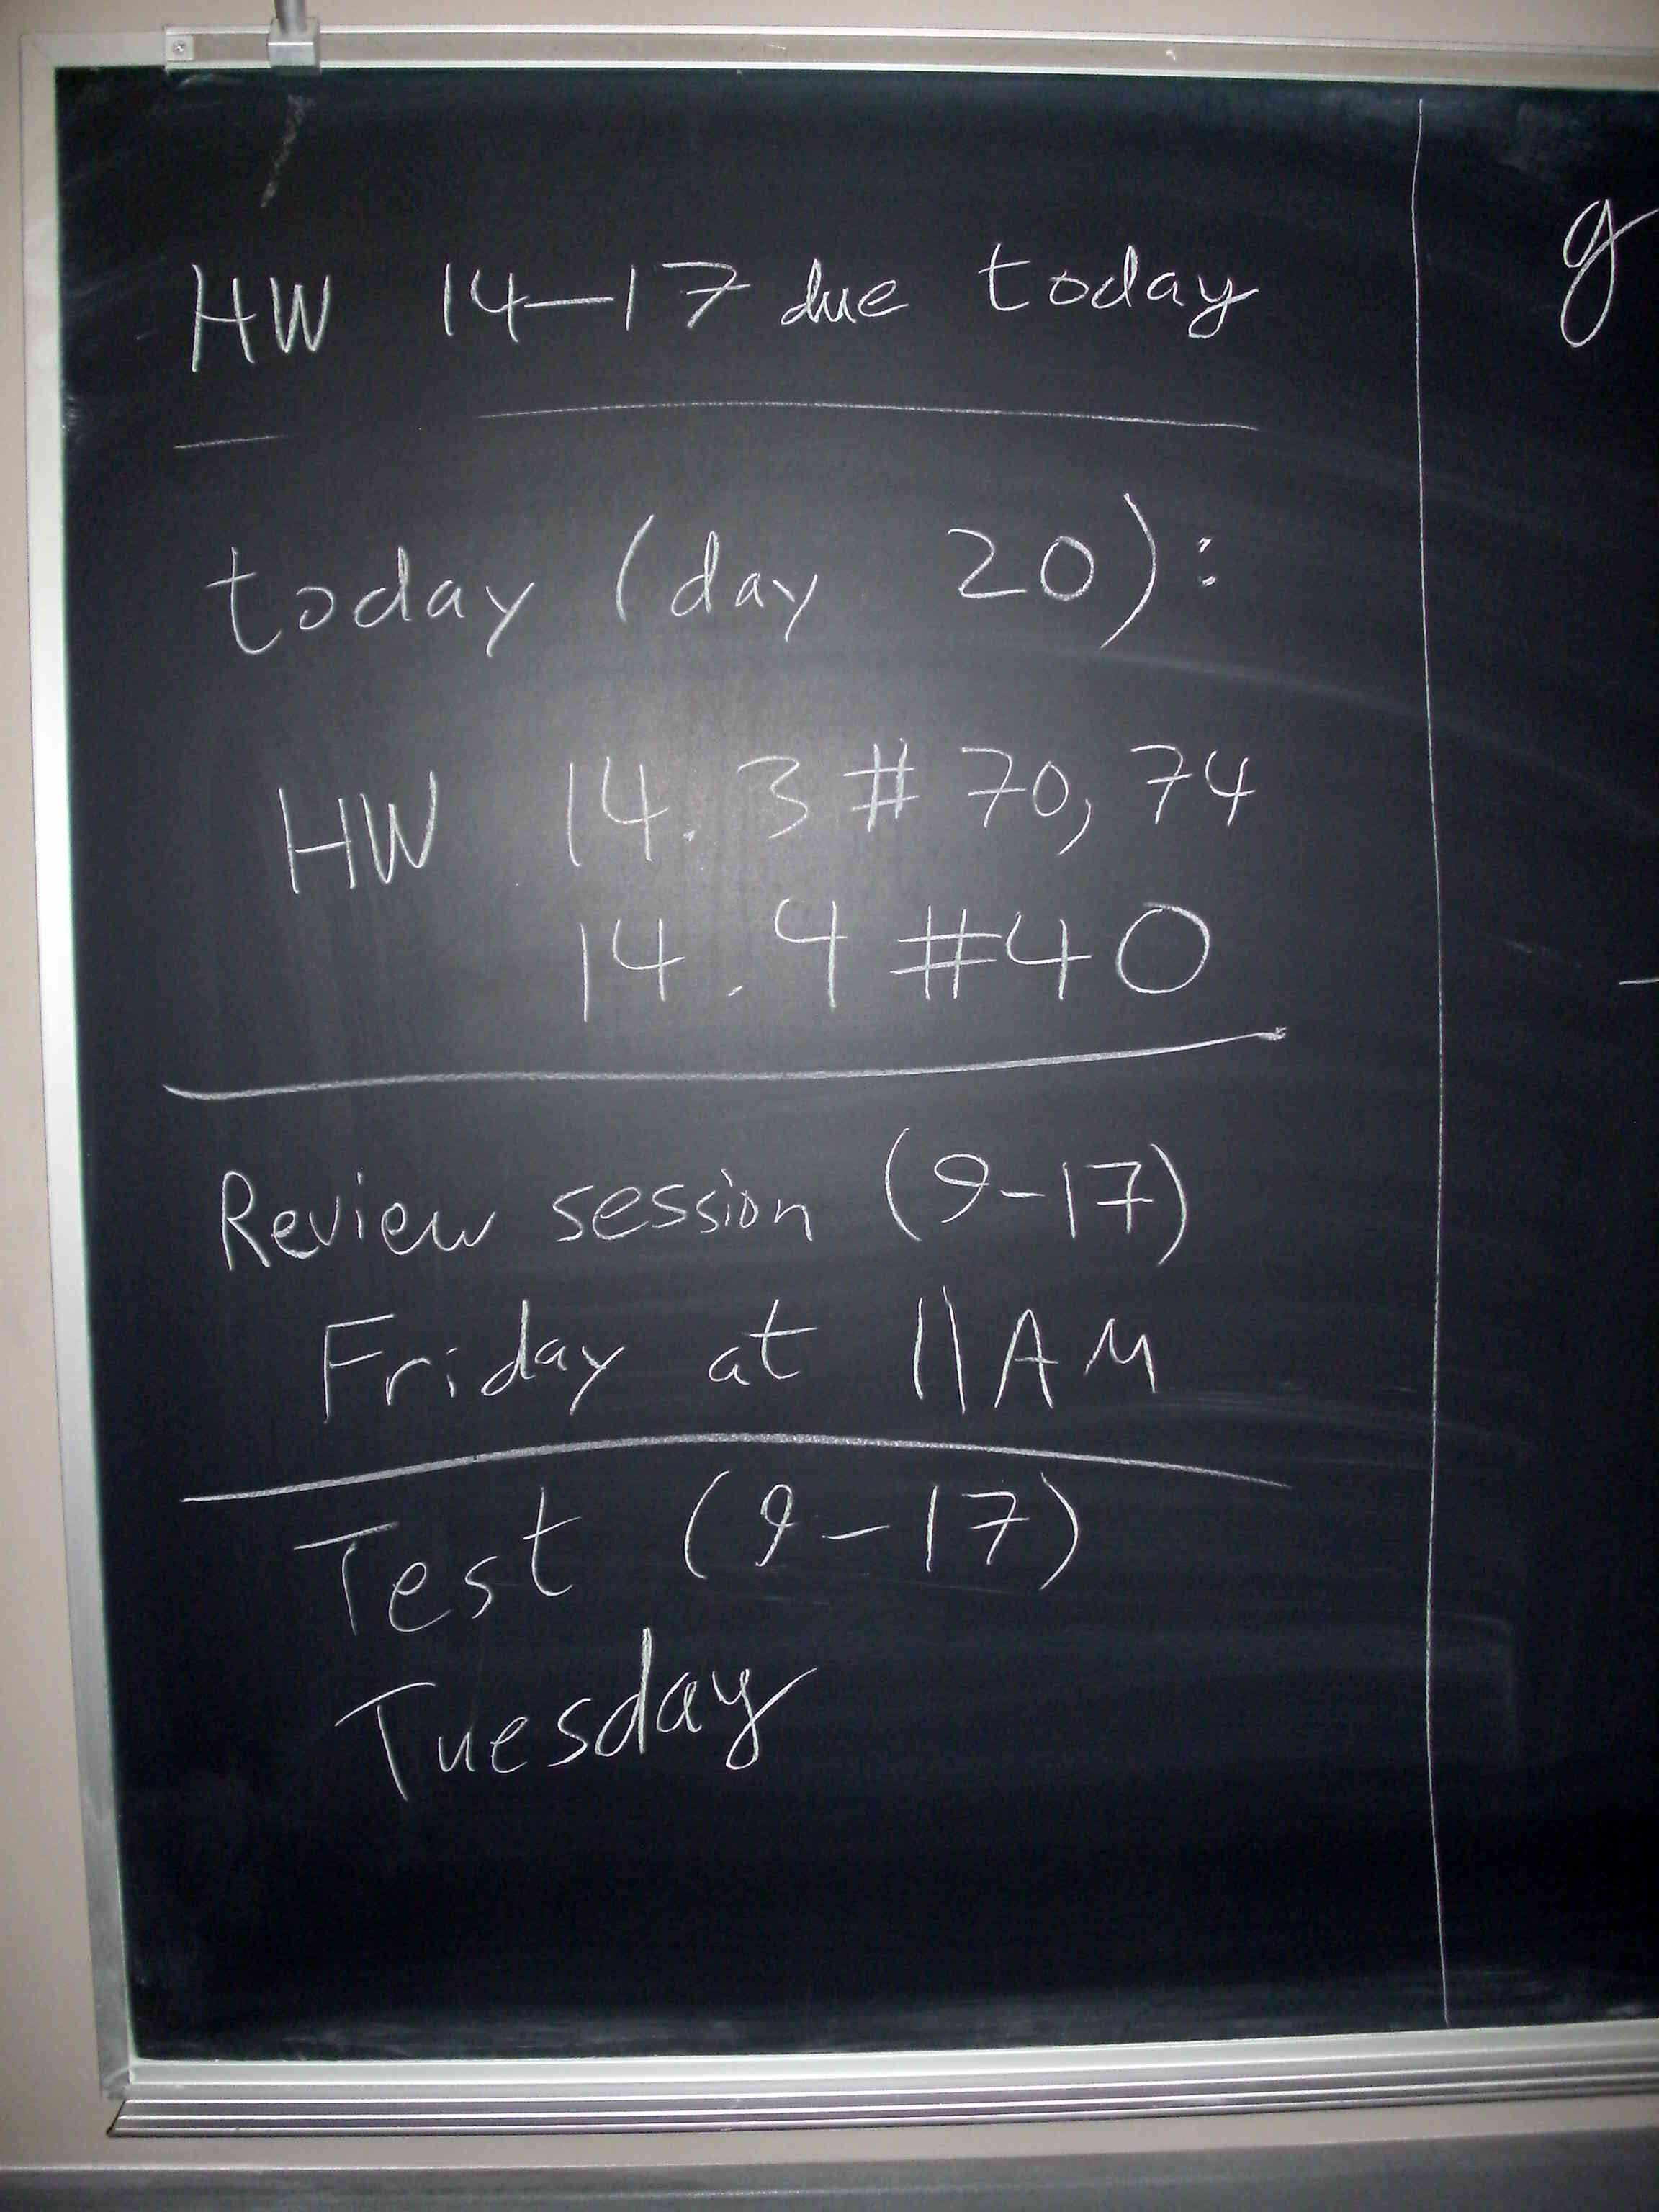 HW 14-17 due today
today (day 20):
HW 14.3 # 70, 74
14.4 #40
Review session (9-17)
Friday at 11 AM
Test (9-17)
Tuesday
g